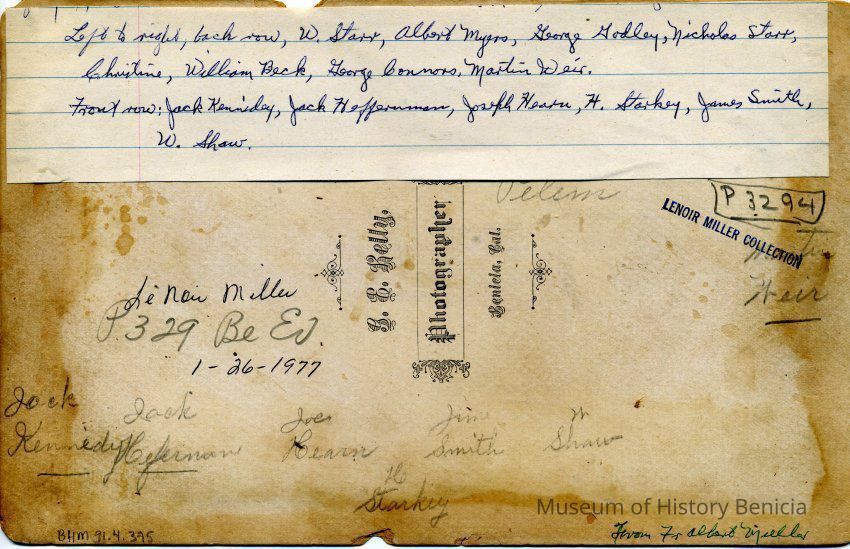 Left to right, back row, W. Starr, Albert Myers, George Godley, Nicholas Starr,
Christine, William Beck, George Connors, Martin Weir.
Front row: Jack Kennidey, Jack Heffernman, Joseph Hearn, H. Starkey, James Smith,
W. Shaw.
P 3294
LENOIR MILLER COLLECTION
G. E. Kelly,
Photographer
Benicia, Cal.
LeNoir Miller
P 329 Be Ed
1-26-1977
Weir
Jack
Kennedy
Jack
Hefernan
Joe
Hearn
H
Starkey
Jim
Smith
W
Shaw
Museum of History Benicia
BHM 91.4.395
From Fr Albert Mueller